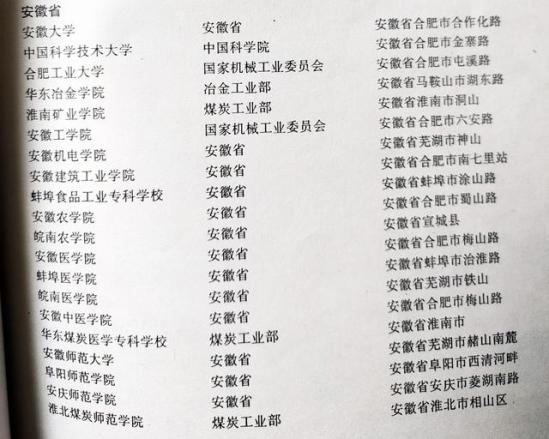 安徽省
安徽大学 安徽省 安徽省合肥市合作化路
中国科学技术大学 中国科学院 安徽省合肥市金寨路
合肥工业大学 国家机械工业委员会 安徽省合肥市屯溪路
华东冶金学院 冶金工业部 安徽省马鞍山市湖东路
淮南矿业学院 煤炭工业部 安徽省淮南市洞山
安徽工学院 国家机械工业委员会 安徽省合肥市六安路
安徽机电学院 安徽省 安徽省芜湖市神山
安徽建筑工业学院 安徽省 安徽省合肥市南七里站
蚌埠食品工业专科学校 安徽省 安徽省蚌埠市涂山路
安徽农学院 安徽省 安徽省合肥市蜀山路
皖南农学院 安徽省 安徽省宣城县
安徽医学院 安徽省 安徽省合肥市梅山路
蚌埠医学院 安徽省 安徽省蚌埠市治淮路
皖南医学院 安徽省 安徽省芜湖市铁山
安徽中医学院 安徽省 安徽省合肥市梅山路
华东煤炭医学专科学校 煤炭工业部 安徽省淮南市
安徽师范大学 安徽省 安徽省芜湖市赭山南麓
阜阳师范学院 安徽省 安徽省阜阳市西清河畔
安庆师范学院 安徽省 安徽省安庆市菱湖南路
淮北煤炭师范学院 煤炭工业部 安徽省淮北市相山区